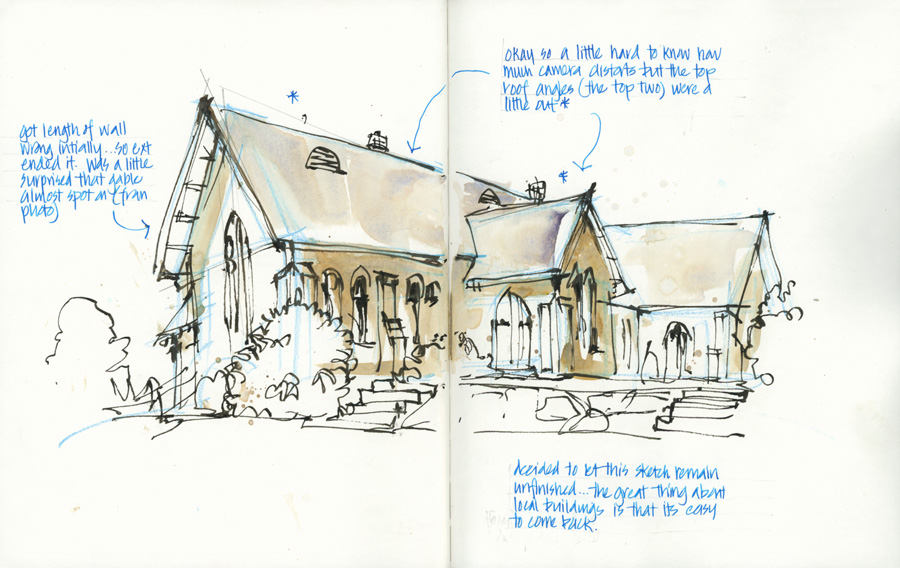 got length of wall
wrong intially...so ext
ended it. was a little
surprised that gable
almost spot on (from
photo)
okay so a little hard to know how
much camera distorts but the top
roof angles (the top two) were a
little out *
*
*
decided to let this sketch remain
unfinished...the great thing about
local buildings is that its easy
to come back.